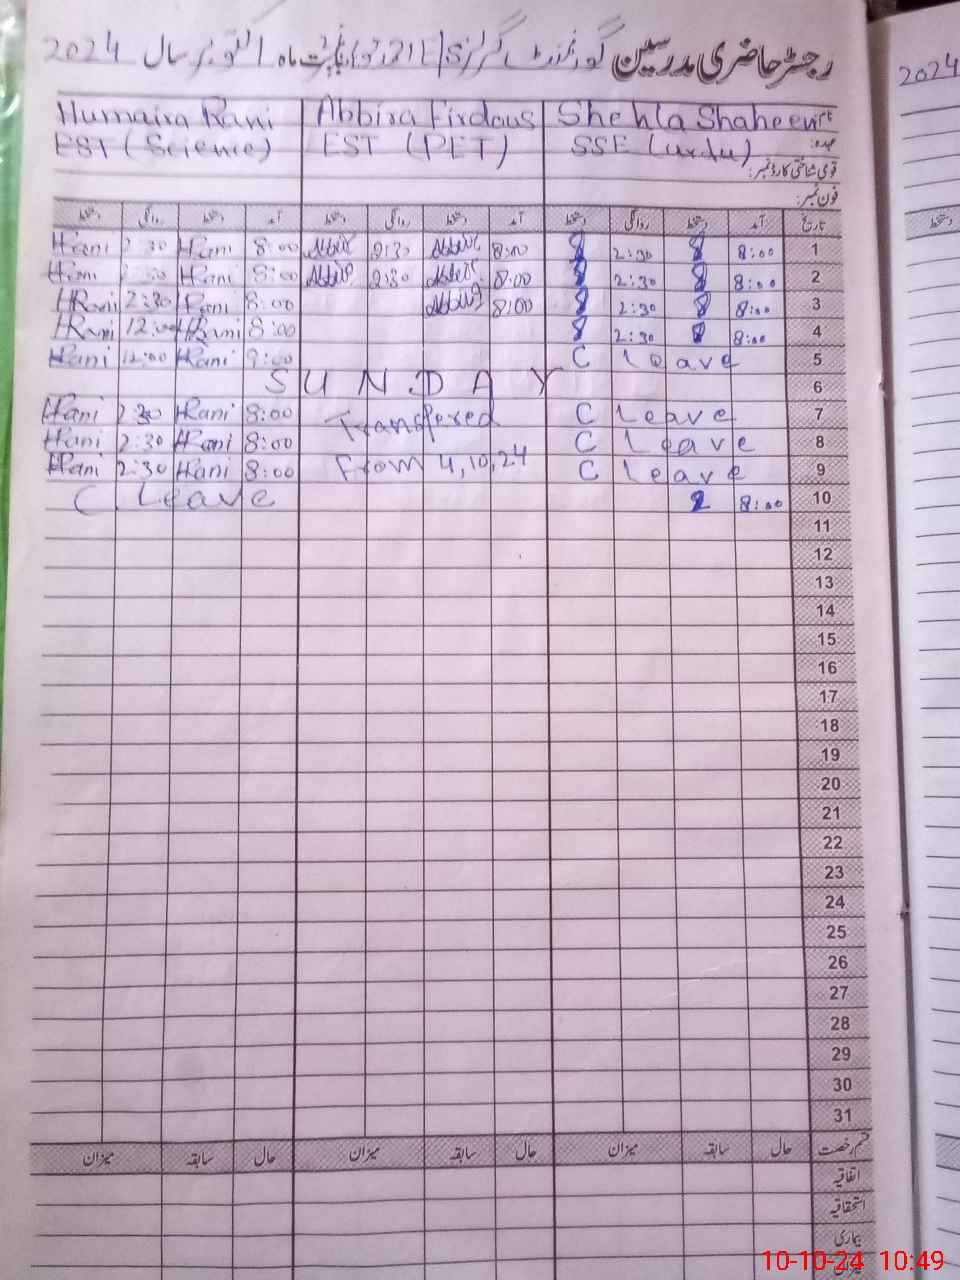 رجسٹر حاضری مدرسین گورنمنٹ گرلز بابت ماہ اکتوبر سال 2024
2024
Humaira Rani Abbira Firdous Shehla Shaheen
EST (Science) EST (PET) SSE (urdu) عہدہ:
قومی شناختی کارڈ نمبر:
فون نمبر:
دستخط روانگی دستخط آمد دستخط روانگی دستخط آمد دستخط روانگی دستخط آمد تاریخ
HRani 2:30 HRani 8:00 2:30 8:00 2:30 8:00 1
HRani Rani 8:00 2:30 8:00 2:30 8:00 2
HRani 2:30 Rani 8:00 8:00 2:30 8:00 3
HRani 12:00 HRani 8:00 2:30 8:00 4
Rani 12:00 HRani 9:00 C leave 5
SUNDAY 6
HRani 2:30 HRani 8:00 Transfered C Leave 7
HRani 2:30 HRani 8:00 C Leave 8
HRani 2:30 HRani 8:00 From 4,10,24 C Leave 9
C Leave 8:00 10
11
12
13
14
15
16
17
18
19
20
21
22
23
24
25
26
27
28
29
30
31
میزان سابقہ حال میزان سابقہ حال میزان سابقہ حال قسم رخصت
اتفاقیہ
استحقاقیہ
بیماری
میزان
10-10-24 10:49